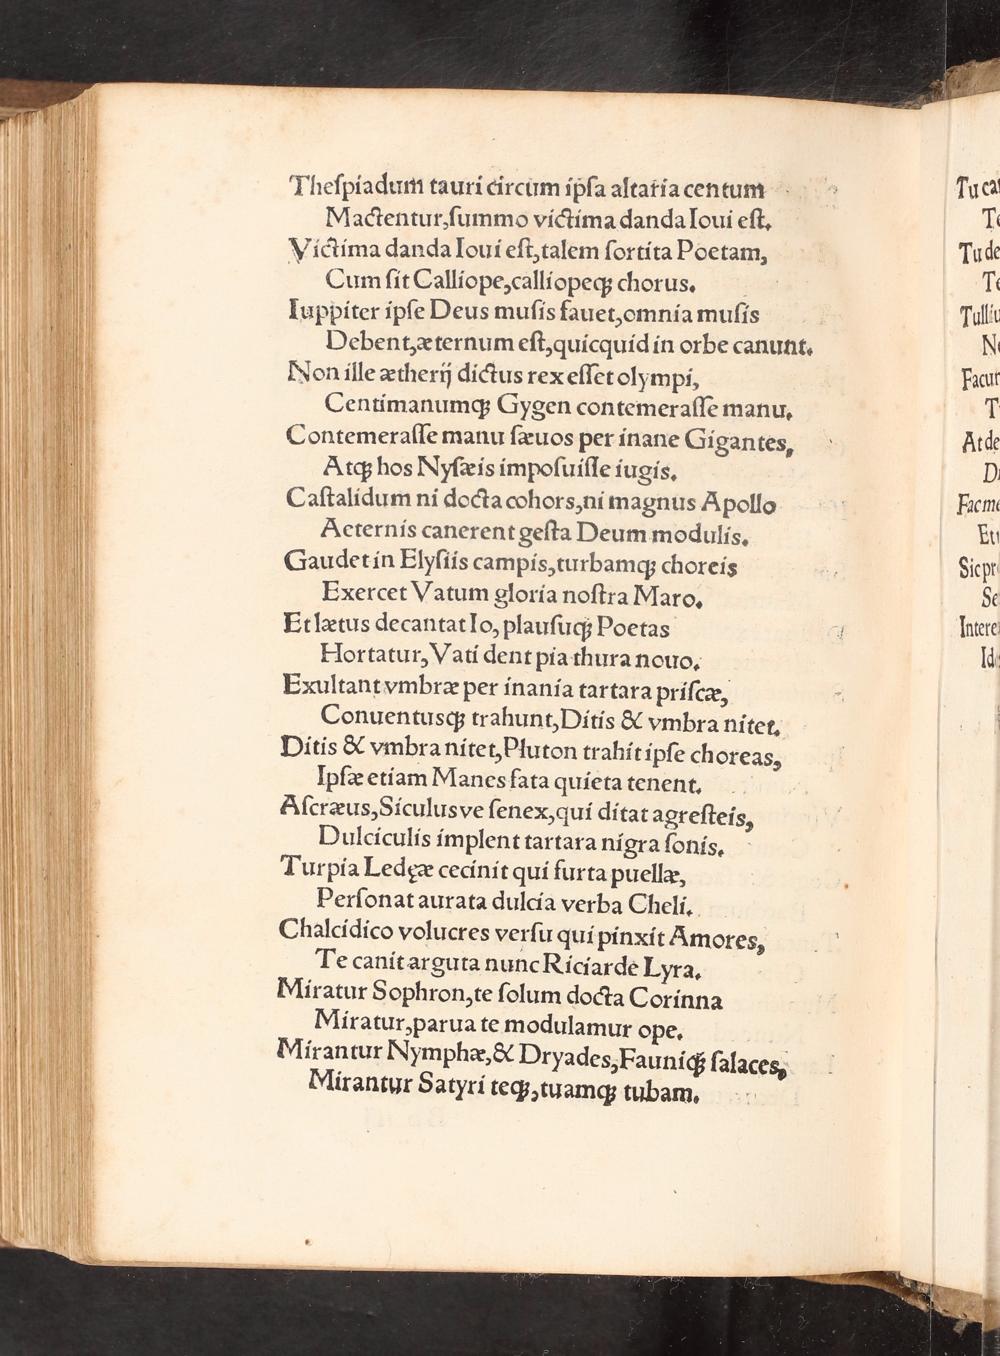 Theſpiadum tauri circum ipſa altaria centum
Mactentur,ſummo victima danda Ioui eſt.
Victima danda Ioui eſt,talem ſortita Poetam,
Cum ſit Calliope,calliopeqꝫ chorus.
Iuppiter ipſe Deus muſis fauet,omnia muſis
Debent,æternum eſt,quicquid in orbe canunt.
Non ille ætherij dictus rex eſſet olympi,
Centimanumqꝫ Gygen contemeraſſe manu.
Contemeraſſe manu ſæuos per inane Gigantes,
Atqꝫ hos Nyſæis impoſuiſſe iugis.
Caſtalidum ni docta cohors,ni magnus Apollo
Aeternis canerent geſta Deum modulis.
Gaudet in Elyſiis campis,turbamqꝫ choreis
Exercet Vatum gloria noſtra Maro.
Et lætus decantat Io, plauſuqꝫ Poetas
Hortatur,Vati dent pia thura nouo.
Exultant vmbræ per inania tartara priſcæ,
Conuentusqꝫ trahunt,Ditis & vmbra nitet.
Ditis & vmbra nitet,Pluton trahit ipſe choreas,
Ipſæ etiam Manes fata quieta tenent.
Aſcræus,Siculusve ſenex,qui ditat agreſteis,
Dulciculis implent tartara nigra ſonis.
Turpia Ledęæ cecinit qui furta puellæ,
Perſonat aurata dulcia verba Cheli.
Chalcidico volucres verſu qui pinxit Amores,
Te canit arguta nunc Riciarde Lyra.
Miratur Sophron,te ſolum docta Corinna
Miratur,parua te modulamur ope.
Mirantur Nymphæ,& Dryades,Fauniqꝫ ſalaces,
Mirantur Satyri teqꝫ,tuamqꝫ tubam.
Tu
Te
Tu de
Te
At de